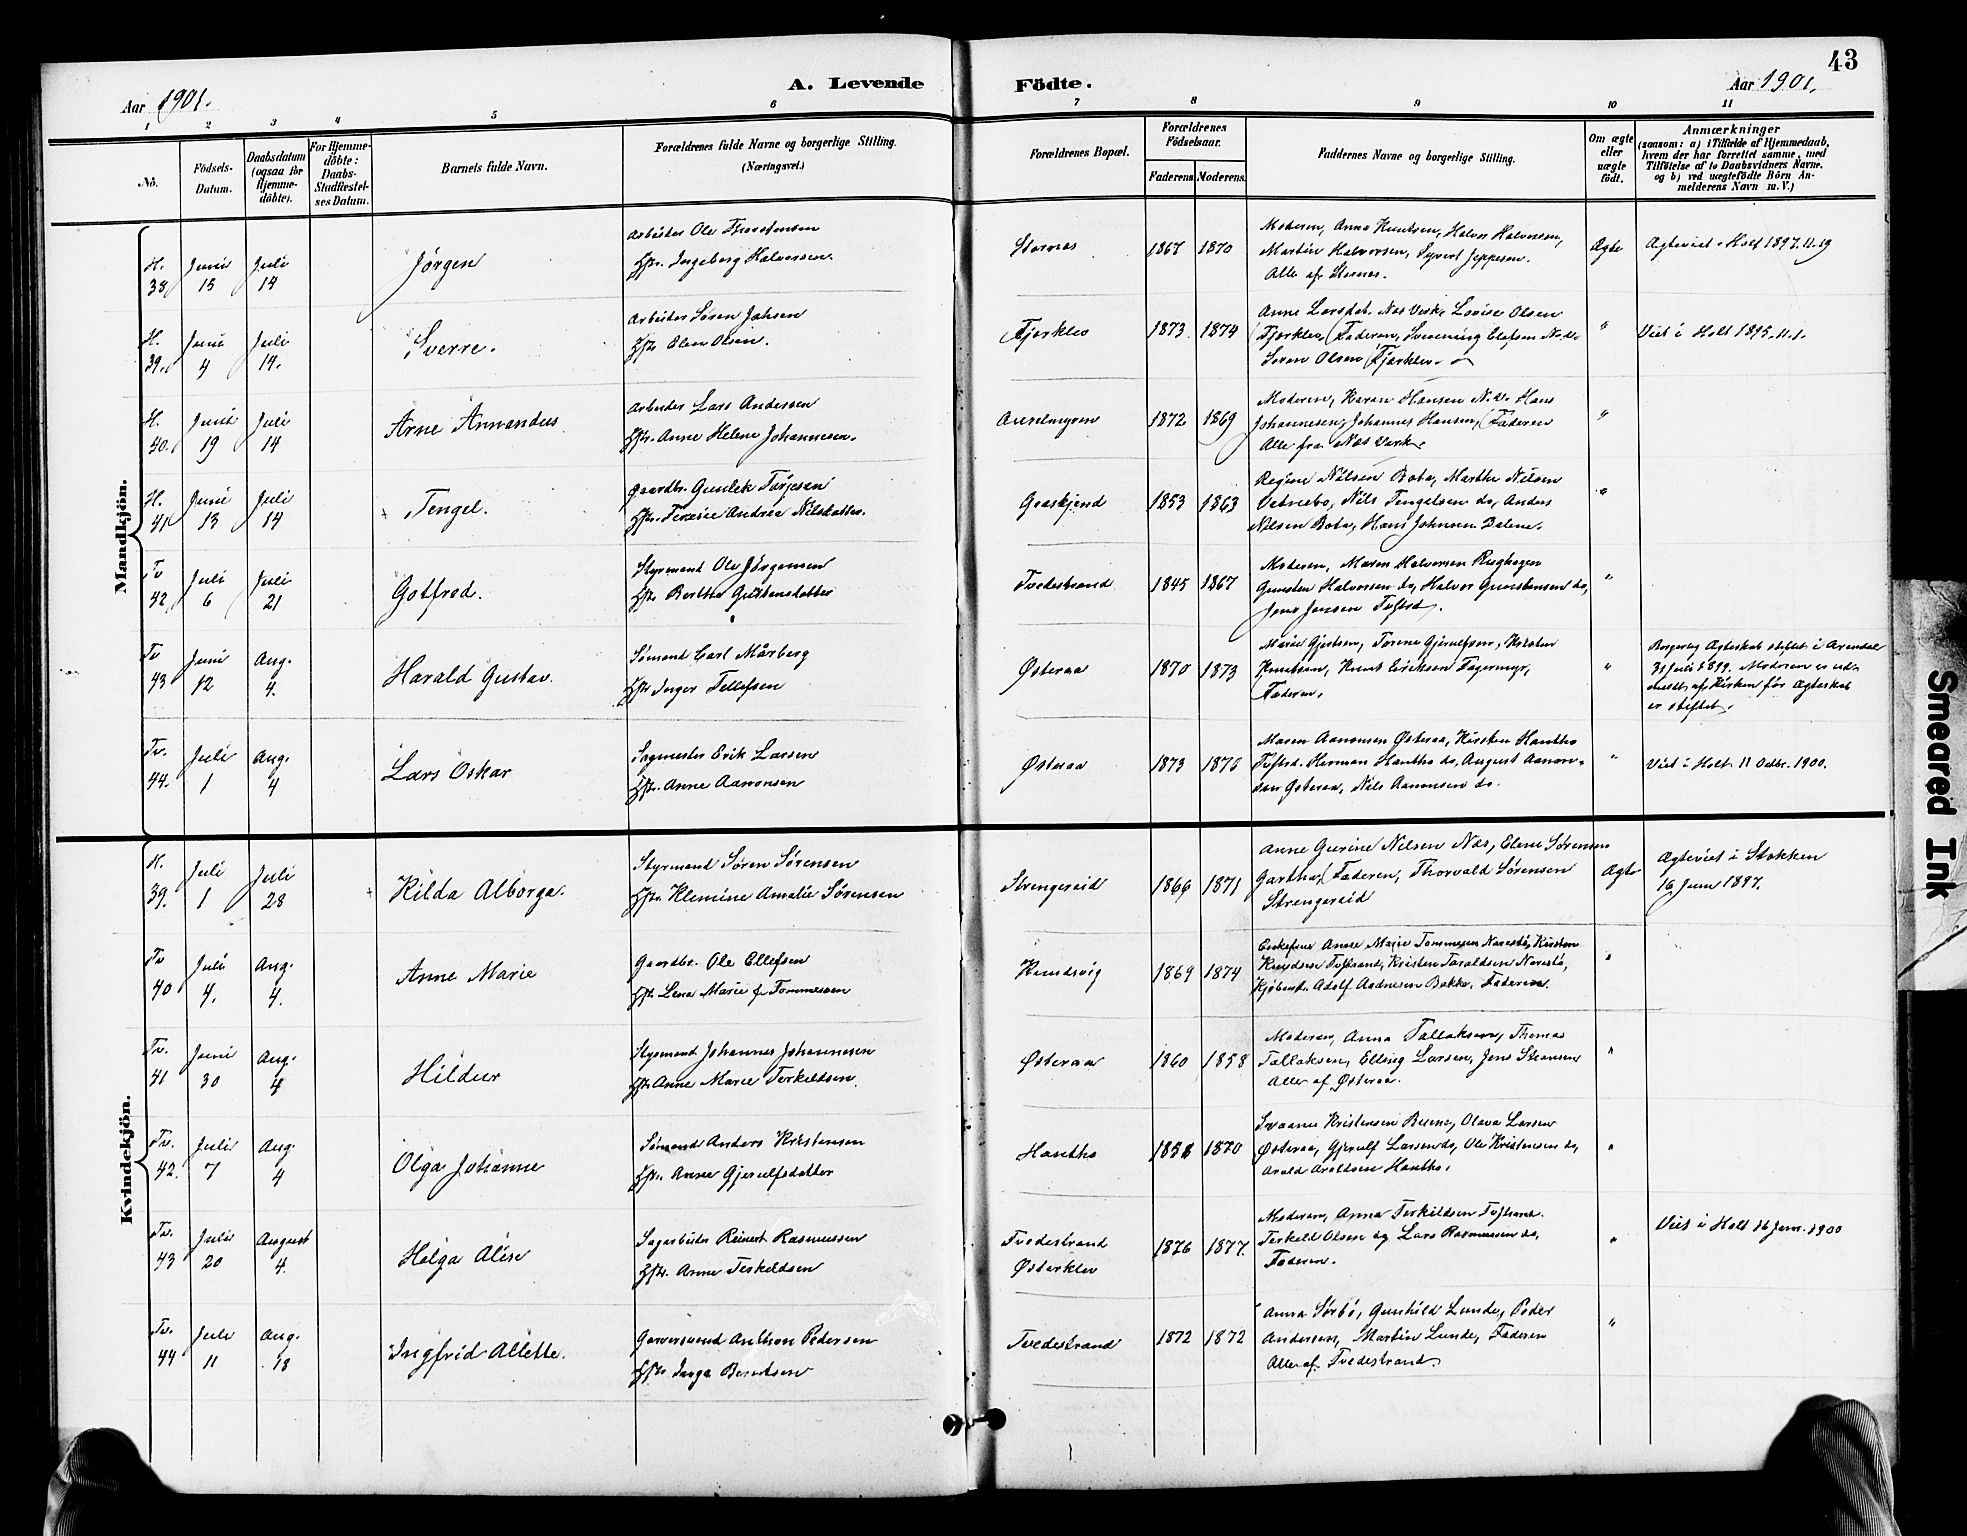 43
Aar 1901.
A. Levende Födte.
Aar 1901.
1 2 3 4 5 6 7 8 9 10 11
No.
Födsels-Datum.
Daabsdatum (ogsaa for Hjemme-döbte).
For Hjemme-döbte: Daabs-Stadfæstel-ses Datum.
Barnets fulde Navn.
Forældrenes fulde Navne og borgerlige Stilling.
(Næringsvei.)
Forældrenes Bopæl.
Forældrenes Födselsaar.
Faderens. Moderens.
Faddernes Navne og borgerlige Stilling.
Om ægte eller uægte födt.
Anmærkninger
(saasom: a) i Tilfælde af Hjemmedaab,
hvem der har forrettet samme, med
Tilföielse af to Daabsvidners Navne.
og b) ved uægtefödte Börn An-
melderens Navn m. V.)
Mandkjön.
H. 38 Juni 15 Juli 14 Jørgen
Arbeider Ole Thorstensen
Hstr. Ingeborg Halvorsen.
Stornæs 1867 1870
Moderen, Anna Knutsen, Halvor Halvorsen,
Martin Halvorsen, Syvert Jeppesen.
Alle af Stornes.
Ægte
Ægteviet i Holt 1897.11.19
H. 39. Juni 4 Juli 14. Sverre.
Arbeider Søren Jahsen
Hstr. Elen Olsen.
Fjærklev 1873 1874
Anne Larsdat. Næs Værk, Lovise Olsen
Fjærklev, Faderen, Svenning Olafsen N.V.
Søren Olsen Fjærklev.
"
Viet i Holt 1895.11.1.
H. 40. Juni 19 Juli 14 Arne Amandus
Arbeider Lars Andersen
Hstr. Anne Helene Johannesen.
1872 1869
Moderen, Karen Hansen N.V. Hans
Johannesen, Johannes Hansen, Faderen
Alle fra Næs Værk.
"
H. 41 Juni 13 Juli 14 Tengel.
Gaardbr. Gunlek Terjesen
Hstr. Teresie Andrea Nilsdatter.
Graskjend 1853 1863
Regine Nilsen Bota, Marthe Nilsen
Vetnebo, Nils Tengelsen do, Anders
Nilsen Bota, Hans Johnsen Dalene.
"
Tv 42. Juli 6 Juli 21 Gotfred.
Styrmand Ole Jørgensen
Hstr. Berthe Gunstensdatter
Tvedestrand 1845 1867
Moderen, Maren Halvorsen Rughagen
Gunsten Halvorsen do, Halvor Gunstensen do,
Jens Jensen Tvstrd.
"
Tv 43 Juni 12 Aug. 4. Harald Gustav.
Sømand Carl Mårberg
Hstr Inger Tellefsen
Østeraa 1870 1873
Marie Gjertsen, Torene Gjerulfsen, Kristen
Knutsen, Knut Eriksen Fagermyr,
Faderen.
"
Borgerlig Ægteskab stiftet i Arendal
31 Juli 1899. Moderen er ud-
meldt af Kirken før Ægteskab
er stiftet.
Tv. 44. Juli 1 Aug. 4 Lars Oskar
Sagmester Erik Larsen
Hstr. Anne Aanonsen
Østeraa 1873 1876
Maren Aanonsen Østeraa, Kirsten Hantho
Tvstrd. Herman Hantho do, August Aanon-
sen Østeraa, Nils Aanonsen do.
"
Viet i Holt 11 Octbr. 1900.
Kvindekjön.
H. 39. Juli 1 Juli 28 Kilda Alborga.
Styrmand Søren Sørensen
Hstr. Klemine Amalie Sørensen
Strengereid 1866 1871
Anne Gurine Nilsen Næs, Elene Sørensen
Gartha, Faderen, Thorvald Sørensen
Strengereid
Ægte
Ægteviet i Stokken
16 Juni 1897.
Tv 40 Juli 4. Aug. 4. Anne Marie
Gaardbr. Ole Ellefsen
Hstr. Lena Marie f. Tommesen
Knudsvig 1869 1874
Enkefrue Anne Marie Tommesen Narestø, Kirsten
Knudsen Tvstrand, Kristen Taraldsen Narestø,
Kjøbmd. Adolf Aadnesen Bakke, Faderen.
"
Tv. 41 Juni 30 Aug. 4 Hildur
Styrmand Johannes Johannesen
Hstr. Anne Marie Terkildsen.
Østeraa 1860 1858
Moderen, Anna Tallaksen, Thomas
Tallaksen, Elling Larsen, Jens Steansen
Alle af Østeraa.
"
Tv. 42. Juli 7 Aug 4 Olga Johanne
Sømand Anders Kristensen
Hstr. Anne Gjerulfsdatter
Hantho 1858 1870
Svaanes Kristensen Buene, Olava Larsen
Østeraa, Gjerulf Larsen do, Ole Kristensen do,
Arald Araldsen Hantho.
"
Tv. 43 Juli 20 August 4. Helga Alise
Sagarbeider Reinert Rasmussen
Hstr. Anne Terkildsen
Tvedestrand
Østerklev 1876 1877.
Moderen, Anna Terkildsen Tvstrand.
Terkild Olsen og Lars Rasmussen do,
Faderen.
"
Viet i Holt 26 Jan. 1900
Tv. 44 Juli 11 Aug. 18 Ingfrid Allette.
Garversvend Anthon Pedersen
Hstr Inga Berntsen
Tvedestrand 1872 1872
Anna Sørbø, Gunhild Lunde, Peder
Andersen, Martin Lunde, Faderen
Alle af Tvedestrand.
"
Smeared Ink